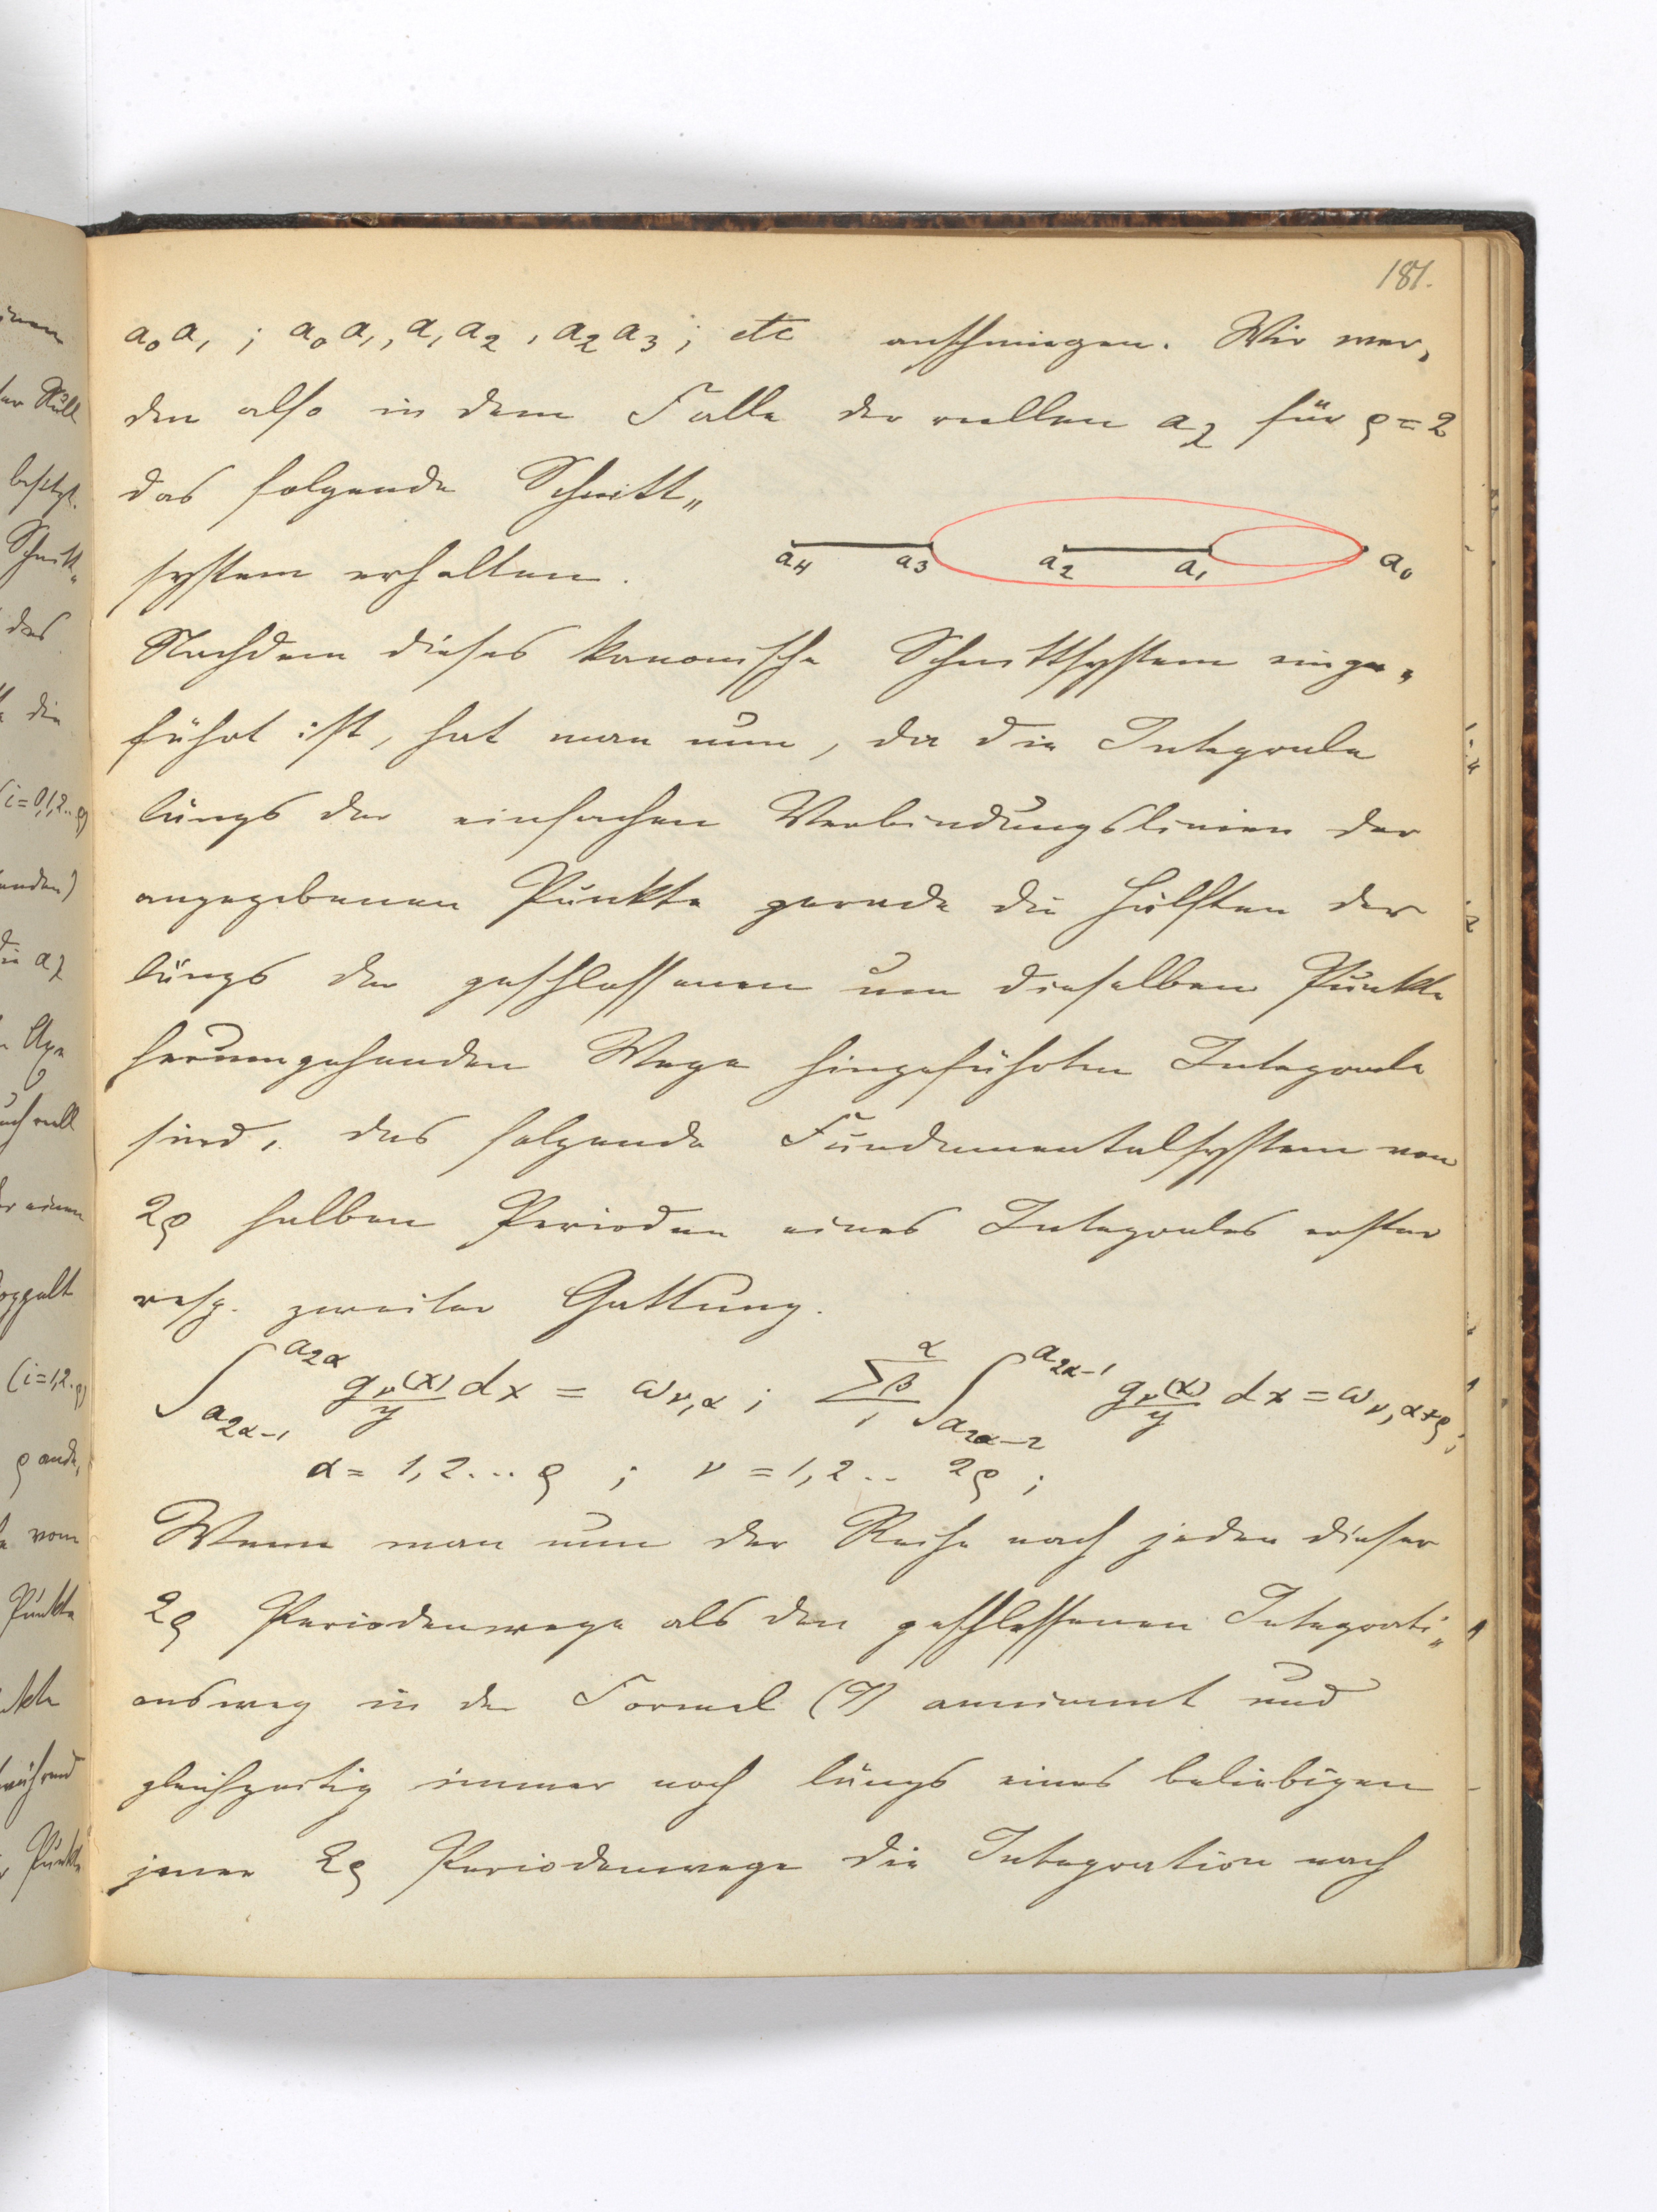 181.
a₀a₁ ; a₀a₁, a₁a₂, a₂a₃ ; etc anschmiegen. Wir wer„
den also in dem Falle der reellen a_λ für ρ=2
das folgende Schnitt„
system erhalten.
a₄ a₃ a₂ a₁ a₀
Nachdem dieses kanonische Schnittsystem einge„
führt ist, hat man nun, da die Integrale
längs der einfachen Verbindungslinien der
angegebenen Punkte gerade die Hälften der
längs der geschlossenen um dieselben Punkte
herumgehenden Wege hingeführten Integrale
sind, das folgende Fundamentalsystem von
2ρ halben Perioden eines Integrales erster
resp. zweiter Gattung.
∫_{a_{2α-1}}^{a_{2α}} g_ν(x)/y dx = ω_{ν,α} ; Σ_β₁^α ∫_{a_{2α-2}}^{a_{2α-1}} g_ν(x)/y dx = ω_{ν,α+ρ} ;
α = 1,2... ρ ; ν = 1,2.. 2ρ ;
Wenn man nun der Reihe nach jeden dieser
2ρ Periodenwege als den geschlossenen Integrati„
onsweg in der Formel (7) annimmt und
gleichzeitig immer noch längs eines beliebigen
jener 2ρ Periodenwege die Integration nach